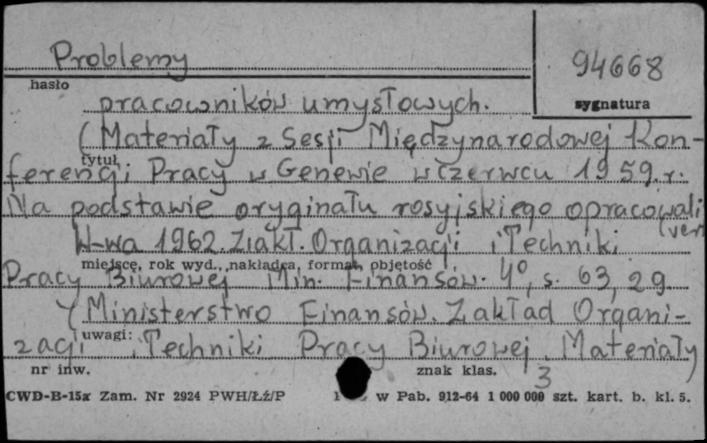 Problemy
94668
hasło
sygnatura
pracowników umysłowych.
(Materiały z Sesji Międzynarodowej Kon-
tytuł
ferencji Pracy w Genewie w czerwcu 1959.r.
Na podstawie oryginału rosyjskiego opracowali
(vert
W-wa 1962. Zakł. Organizacji i Techniki
miejsce, rok wyd., nakładca, format, objętość
Pracy Biurowej Min. Finansów. 4°, s. 63, 29
(Ministerstwo Finansów. Zakład Organi-
uwagi:
zacji i Techniki Pracy Biurowej. Materiały
nr inw.
znak klas.
3
CWD-B-15x Zam. Nr 2924 PWH/Łź/P w Pab. 912-64 1 000 000 szt. kart. b. kl. 5.